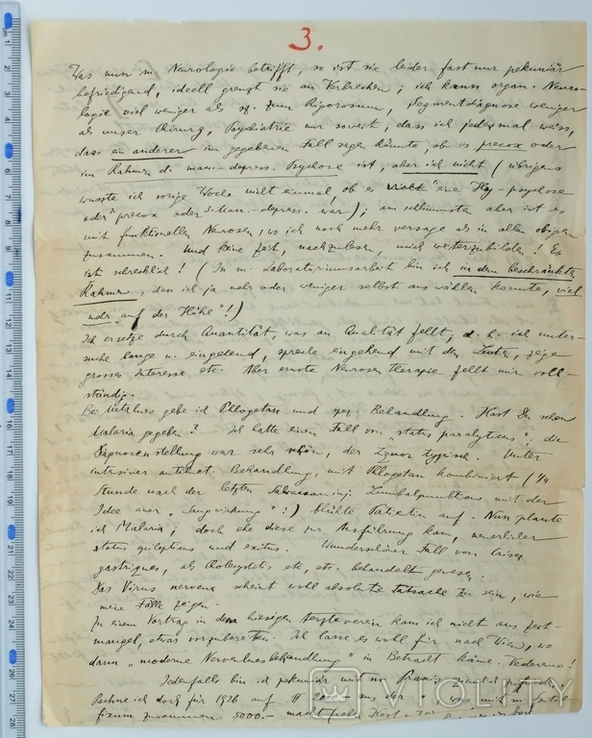 3.
Was nun m. Neurologie betrifft, so ist sie leider fast nur pekuniär
befriedigend, ideell grenzt sie an Verbrechen; ich kann organ. Neuro-
logie viel weniger als zum Rigorosum, Segmentdiagnose weniger
als unser Chirurg, Psychiatrie nur soweit, dass ich jedesmal weiss,
dass ein anderer im gegebenen Fall sagen könnte, ob es precox oder
im Rahmen d. man.-depress. Psychose ist, aber ich nicht (übrigens
wusste ich vorige Woche nicht einmal ob es eine Hy-psychose
oder precox oder Man.-depress. war); am schlimmsten aber ist es
mit funktionellen Neurosen, wo ich noch mehr versage als in allen obigen
zusammen. Und keine Zeit, nachzulesen, mich weiterzubilden! Es
ist schrecklich! (In m. Laboratoriumsarbeit bin ich in dem beschränkten
Rahmen, den ich ja mehr oder weniger selbst auswählen konnte, viel
mehr „auf der Höhe"!)
Ich ersetze durch Quantität, was an Qualität fehlt, d. h. ich unter-
suche lange u. eingehend, spreche eingehend mit den Leuten, zeige
grosses Interesse etc. Aber ernste Neurosentherapie fehlt mir voll-
ständig.
Bei Metalues gebe ich Phlogetan und spez. Behandlung. Hast Du schon
Malaria gegeben? Ich hatte einen Fall von „status paralyticus", die
war sehr schön, der Liquor typisch. Unter
intensiver antiluet. Behandlung, mit Phlogetan kombiniert (1/4
Stunde nach der letzten Lumbalpunktion mit der
Idee einer „Saugwirkung"!) blühte Patientin auf. Nun plante
ich Malaria; doch ehe diese zur Ausführung kam, neuerlicher
status epilepticus und exitus. Wunderschöner Fall von Crises
gastriques, als Cholecystitis etc, etc. behandelt gewesen.
Das Virus nerveux scheint wohl absolute Tatsache zu sein, wie
meine Fälle zeigen.
Zu einem Vortrag in dem hiesigen Ärzteverein kam ich nicht aus Zeit-
mangel, etwas vorzubereiten. Ich lasse es wohl für nach Wien, wo
dann „moderne Nervenluesbehandlung" in Betracht käme. Vederemo!
Jedenfalls bin ich pekuniär mit m. Praxis ziemlich
Rechne ich doch für 1926 auf aus der was mit m.
fixum zusammen 5000.- macht
VIOLITY